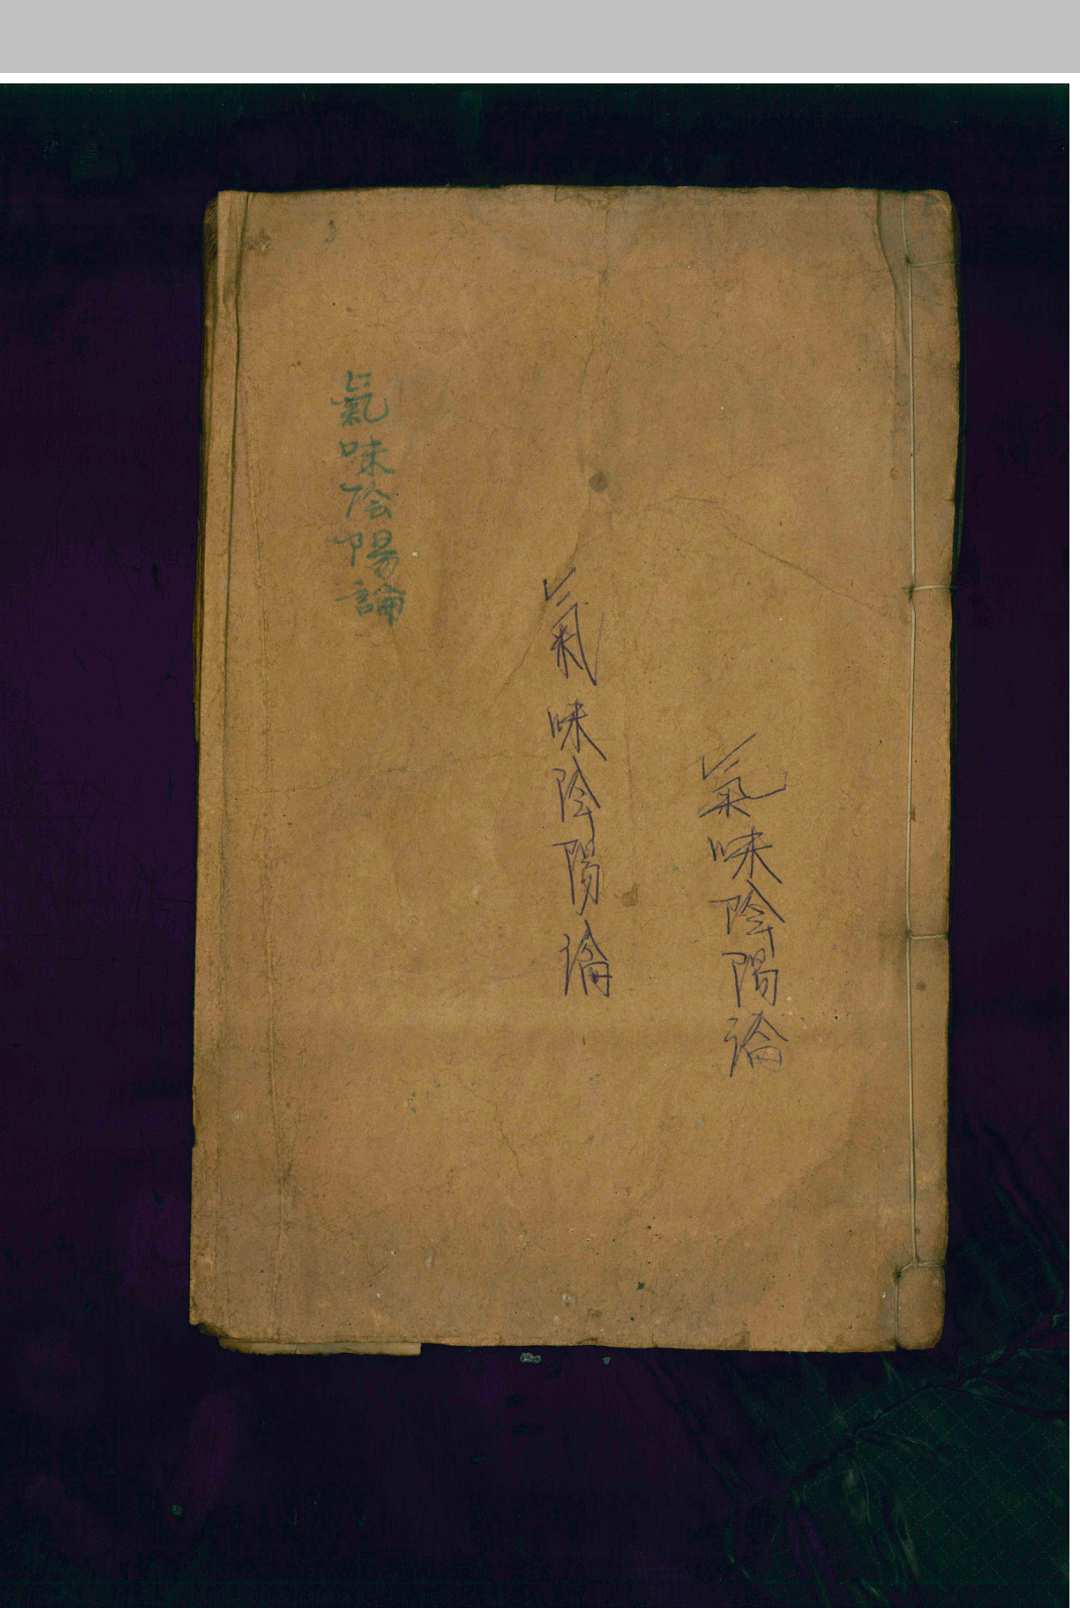 氣味陰陽論
氣味陰陽論
氣味陰陽論